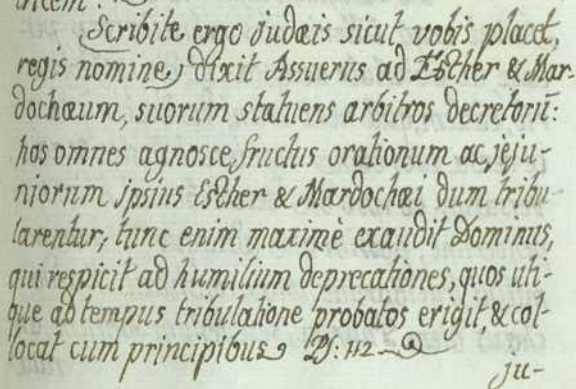 Scribite ergo judæis sicut vobis placet,
regis nomine, dixit Assuerus ad Esther & Mar-
dochæum, suorum statuens arbitros decretorũ:
hos omnes agnosce fructus orationum ac jeju-
niorum ipsius Esther & Mardochæi dum tribu
larentur; tunc enim maximè exaudit Dominus,
qui respicit ad humilium deprecationes, quos uti-
que ad tempus tribulatione probatos erigit, & col-
locat cum principibus Ps: 112
ju-